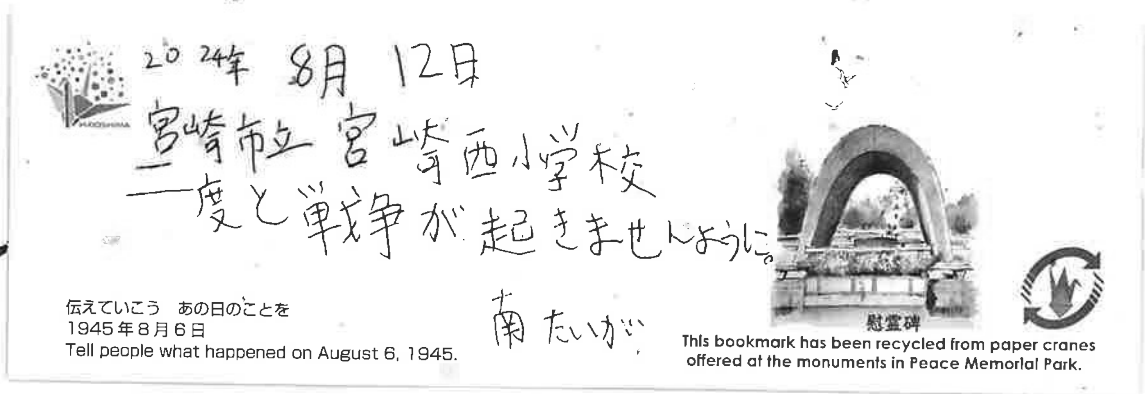 HIROSHIMA
2024年 8月 12日
宮崎市立 宮崎西小学校
二度と戦争が起きませんように。
南 たいが
伝えていこう あの日のことを
1945年8月6日
Tell people what happened on August 6, 1945.
慰霊碑
This bookmark has been recycled from paper cranes
offered at the monuments in Peace Memorial Park.